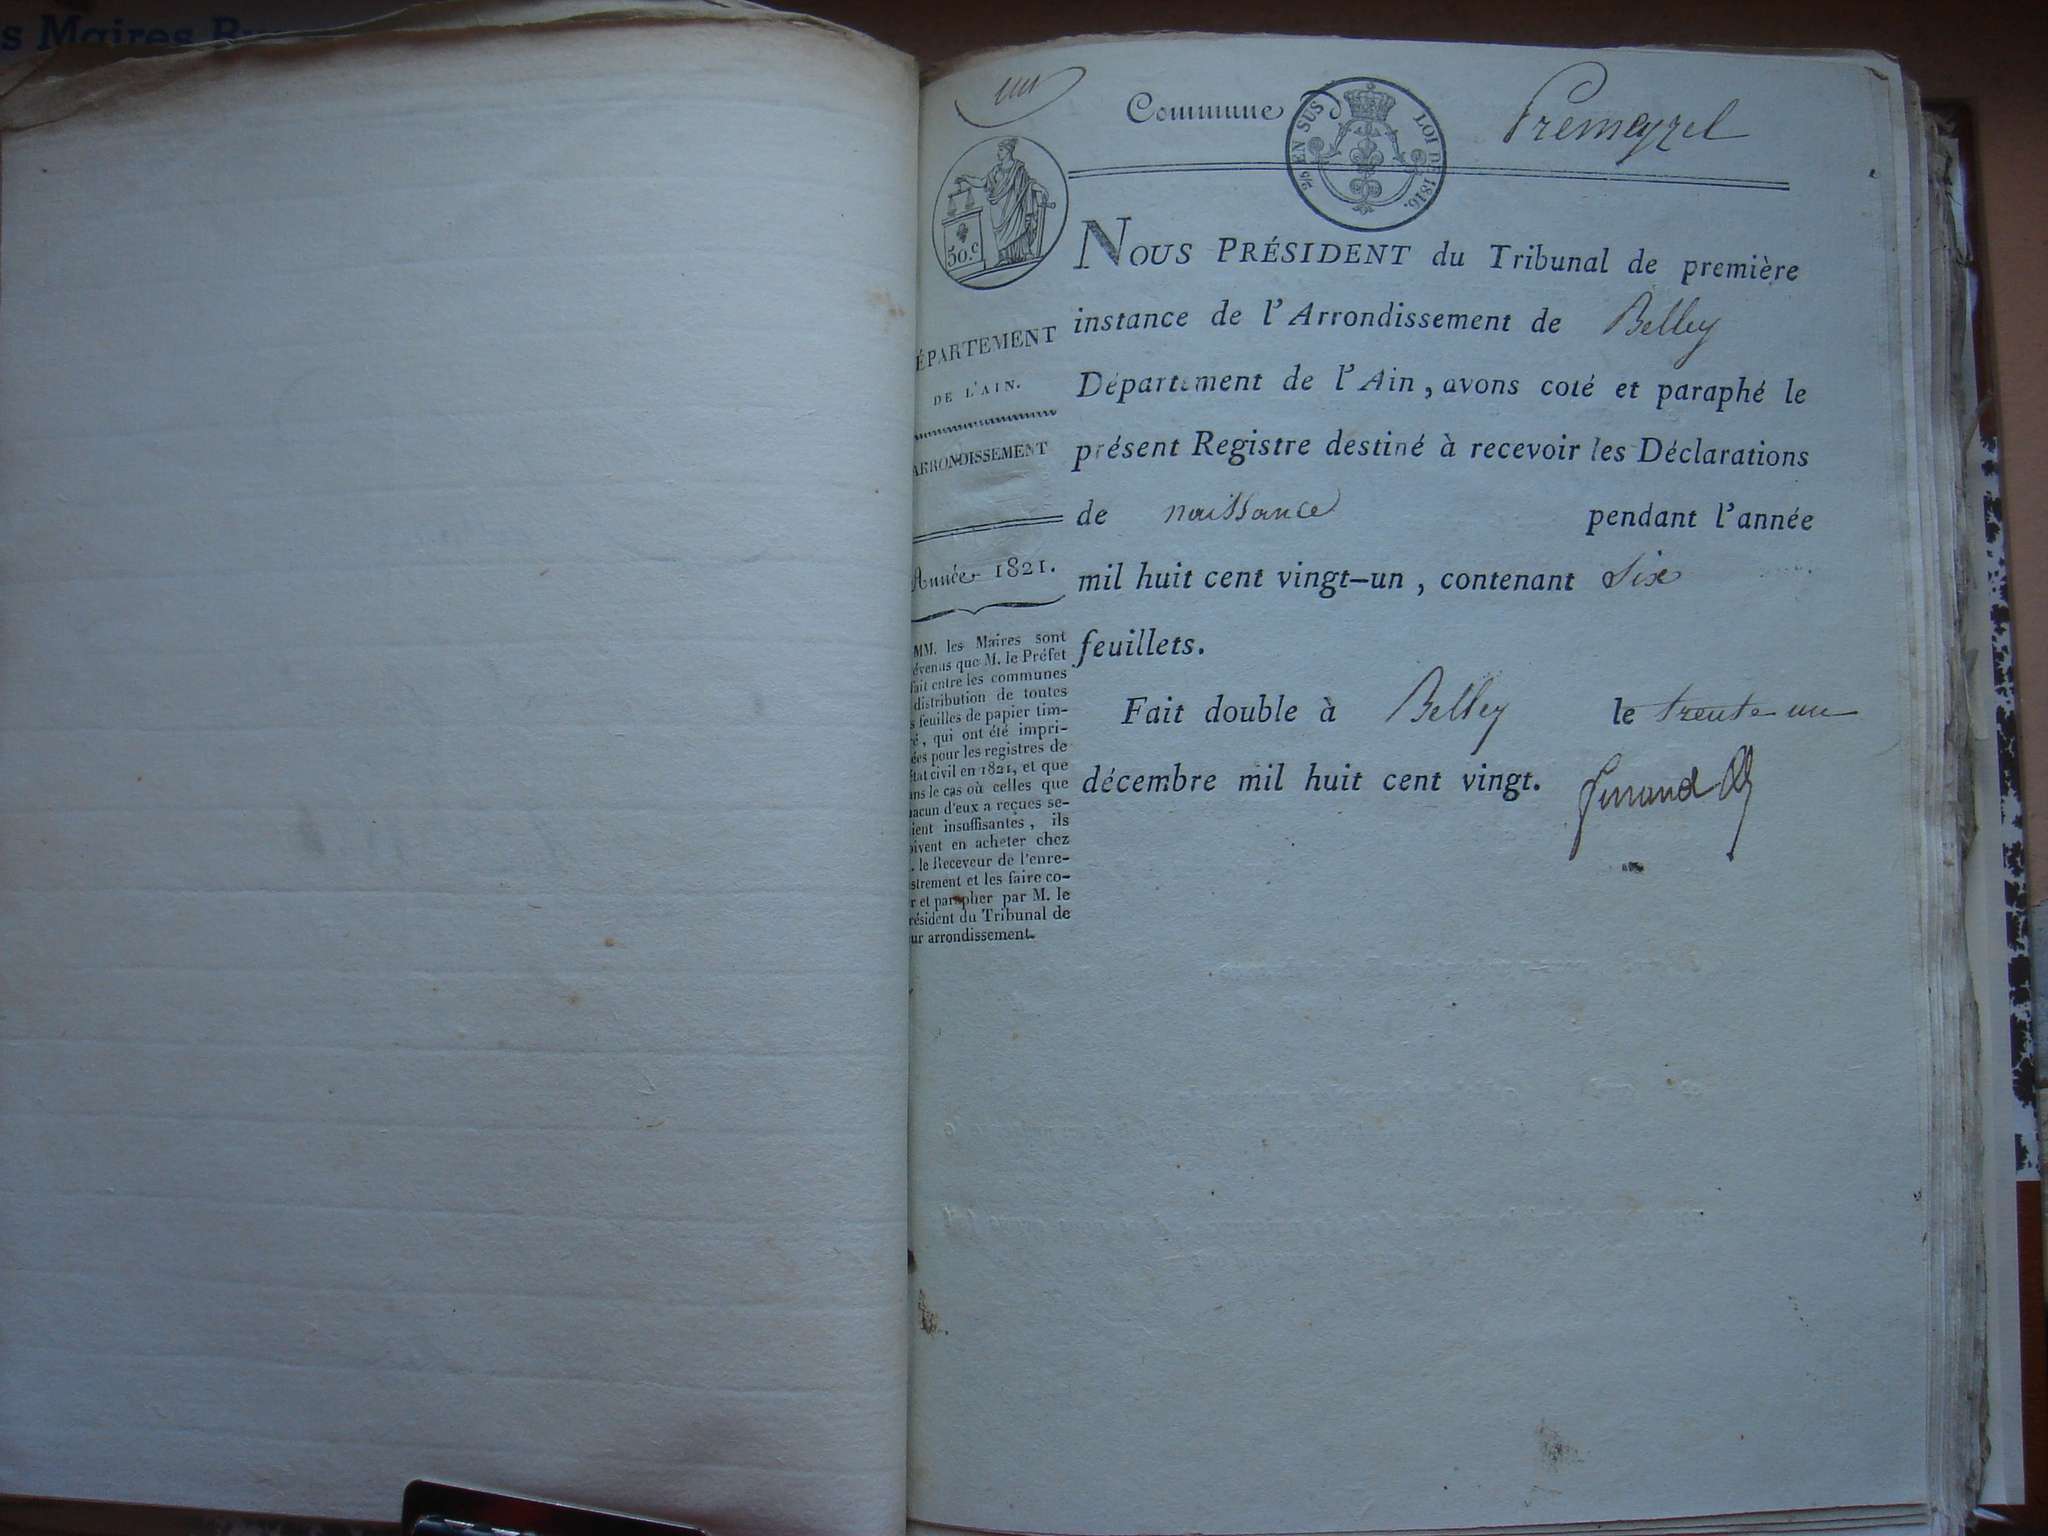 s Maires Ru
un
Commune d Premeyzel
2/5 EN SUS LOI DE 1816.
50.c
NOUS PRÉSIDENT du Tribunal de première
instance de l'Arrondissement de Belley
Département de l'Ain, avons coté et paraphé le
présent Registre destiné à recevoir les Déclarations
de naissance pendant l'année
mil huit cent vingt-un, contenant Six
feuillets.
Fait double à Belley le trente un
décembre mil huit cent vingt.
ÉPARTEMENT
DE L'AIN.
ARRONDISSEMENT
Année 1821.
MM. les Maires sont
évenus que M. le Préfet
fait entre les communes
distribution de toutes
s feuilles de papier tim-
ré, qui ont été impri-
ées pour les registres de
état civil en 1821, et que
ans le cas où celles que
hacun d'eux a reçues se-
ient insuffisantes, ils
oivent en acheter chez
. le Receveur de l'enre-
strement et les faire co-
r et parapher par M. le
résident du Tribunal de
ur arrondissement.